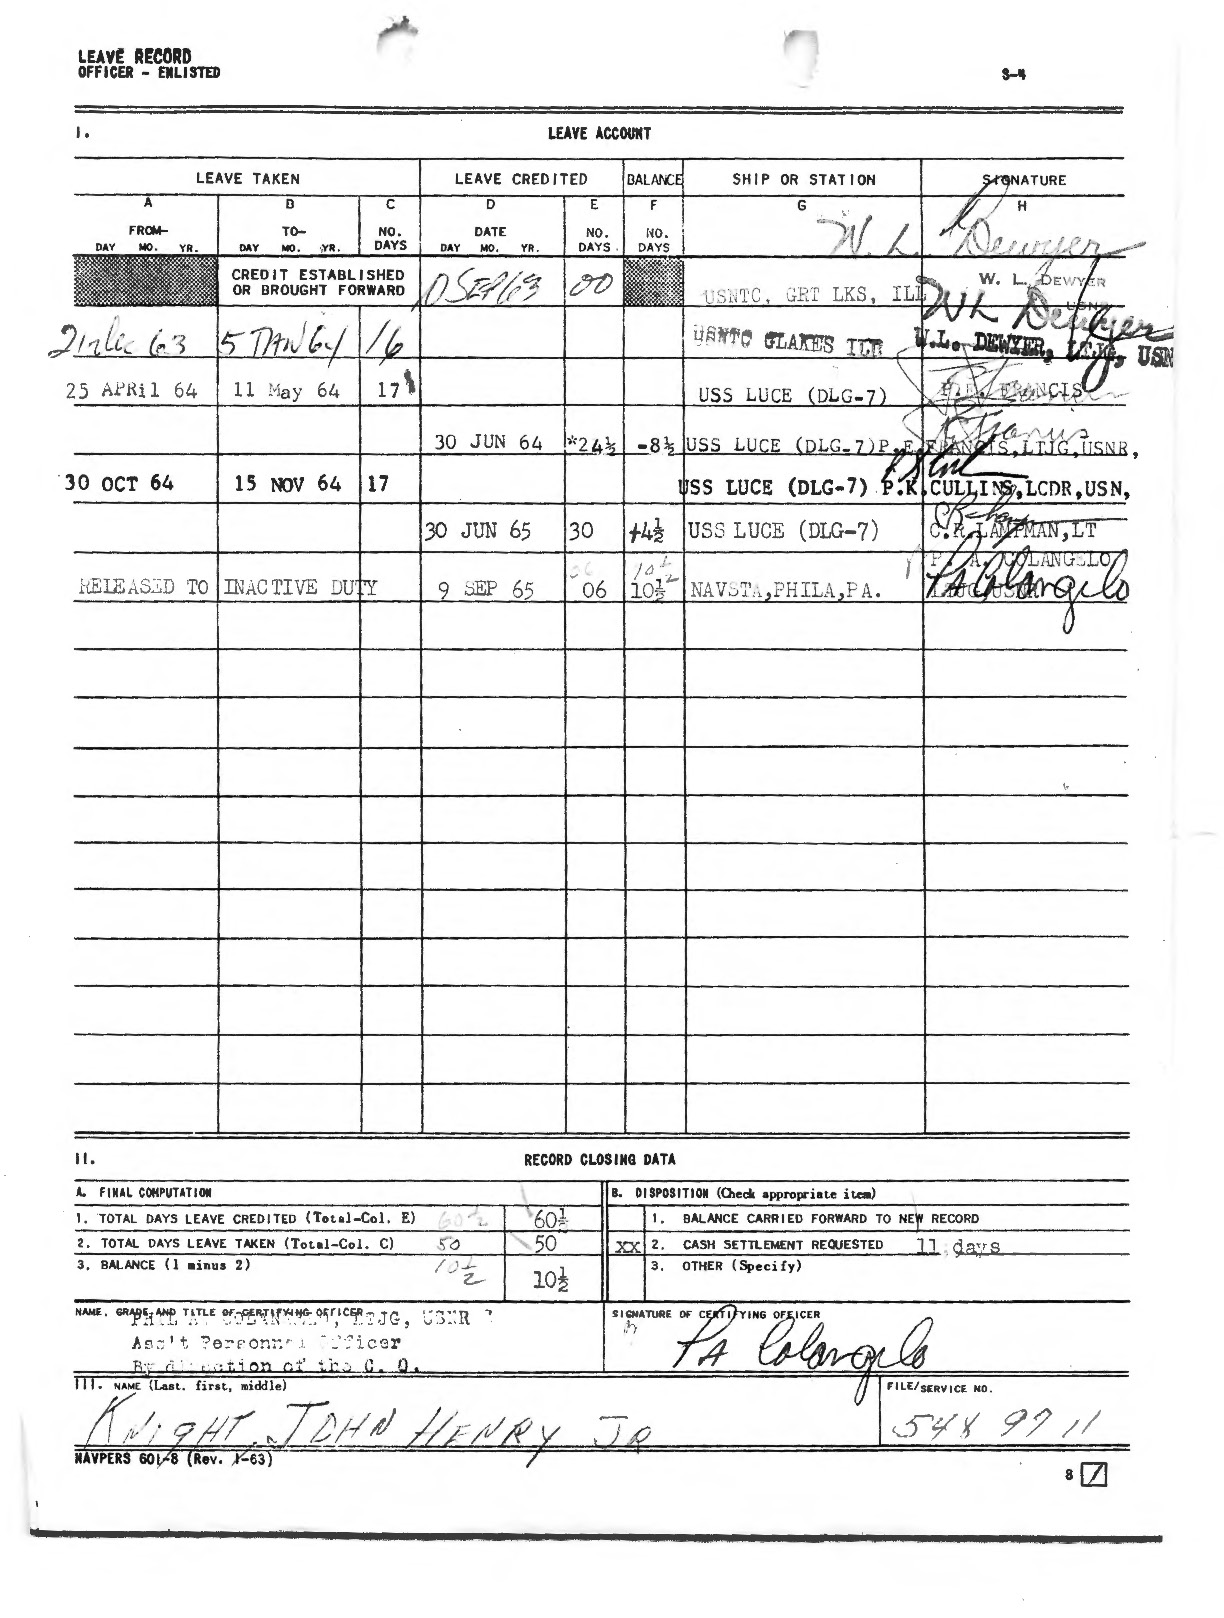 LEAVE RECORD
OFFICER - ENLISTED
S-4
I. LEAVE ACCOUNT
LEAVE TAKEN LEAVE CREDITED BALANCE SHIP OR STATION SIGNATURE
A B C D E F G H
FROM- TO- NO. DATE NO. NO.
DAY MO. YR. DAY MO. YR. DAYS DAY MO. YR. DAYS DAYS
W. L. Dewyer
CREDIT ESTABLISHED
OR BROUGHT FORWARD
SEP 63 00 USNTC, GRT LKS, ILL W. L. DEWYER
USNR
W L Dewyer
21 Dec 63 5 JAN 64 16 USNTC GLAKES ILL W.L. DEWYER, LTJG, USN
25 APRil 64 11 May 64 17 USS LUCE (DLG-7) P.E. FRANCIS
30 JUN 64 *24½ -8½ USS LUCE (DLG-7) P.E. FRANCIS, LTJG, USNR,
30 OCT 64 15 NOV 64 17 USS LUCE (DLG-7) P.K. CULLINS, LCDR, USN,
30 JUN 65 30 +4½ USS LUCE (DLG-7) C.R. LAMPMAN, LT
06 10½ P. A. COLANGELO
RELEASED TO INACTIVE DUTY 9 SEP 65 06 10½ NAVSTA, PHILA, PA. LTJG USNR
PA Colangelo
II. RECORD CLOSING DATA
A. FINAL COMPUTATION B. DISPOSITION (Check appropriate item)
1. TOTAL DAYS LEAVE CREDITED (Total-Col. E) 60½ 60½ 1. BALANCE CARRIED FORWARD TO NEW RECORD
2. TOTAL DAYS LEAVE TAKEN (Total-Col. C) 50 50 XX 2. CASH SETTLEMENT REQUESTED 11 days
3. BALANCE (1 minus 2) 10½ 10½ 3. OTHER (Specify)
NAME, GRADE AND TITLE OF CERTIFYING OFFICER SIGNATURE OF CERTIFYING OFFICER
PHIL A. COLANGELO, LTJG, USNR
Ass't Personnel Officer PA Colangelo
By direction of the C. O.
III. NAME (Last, first, middle) FILE/SERVICE NO.
KNIGHT, JOHN HENRY JR 548 97 11
NAVPERS 601-8 (Rev. 1-63)
8 1